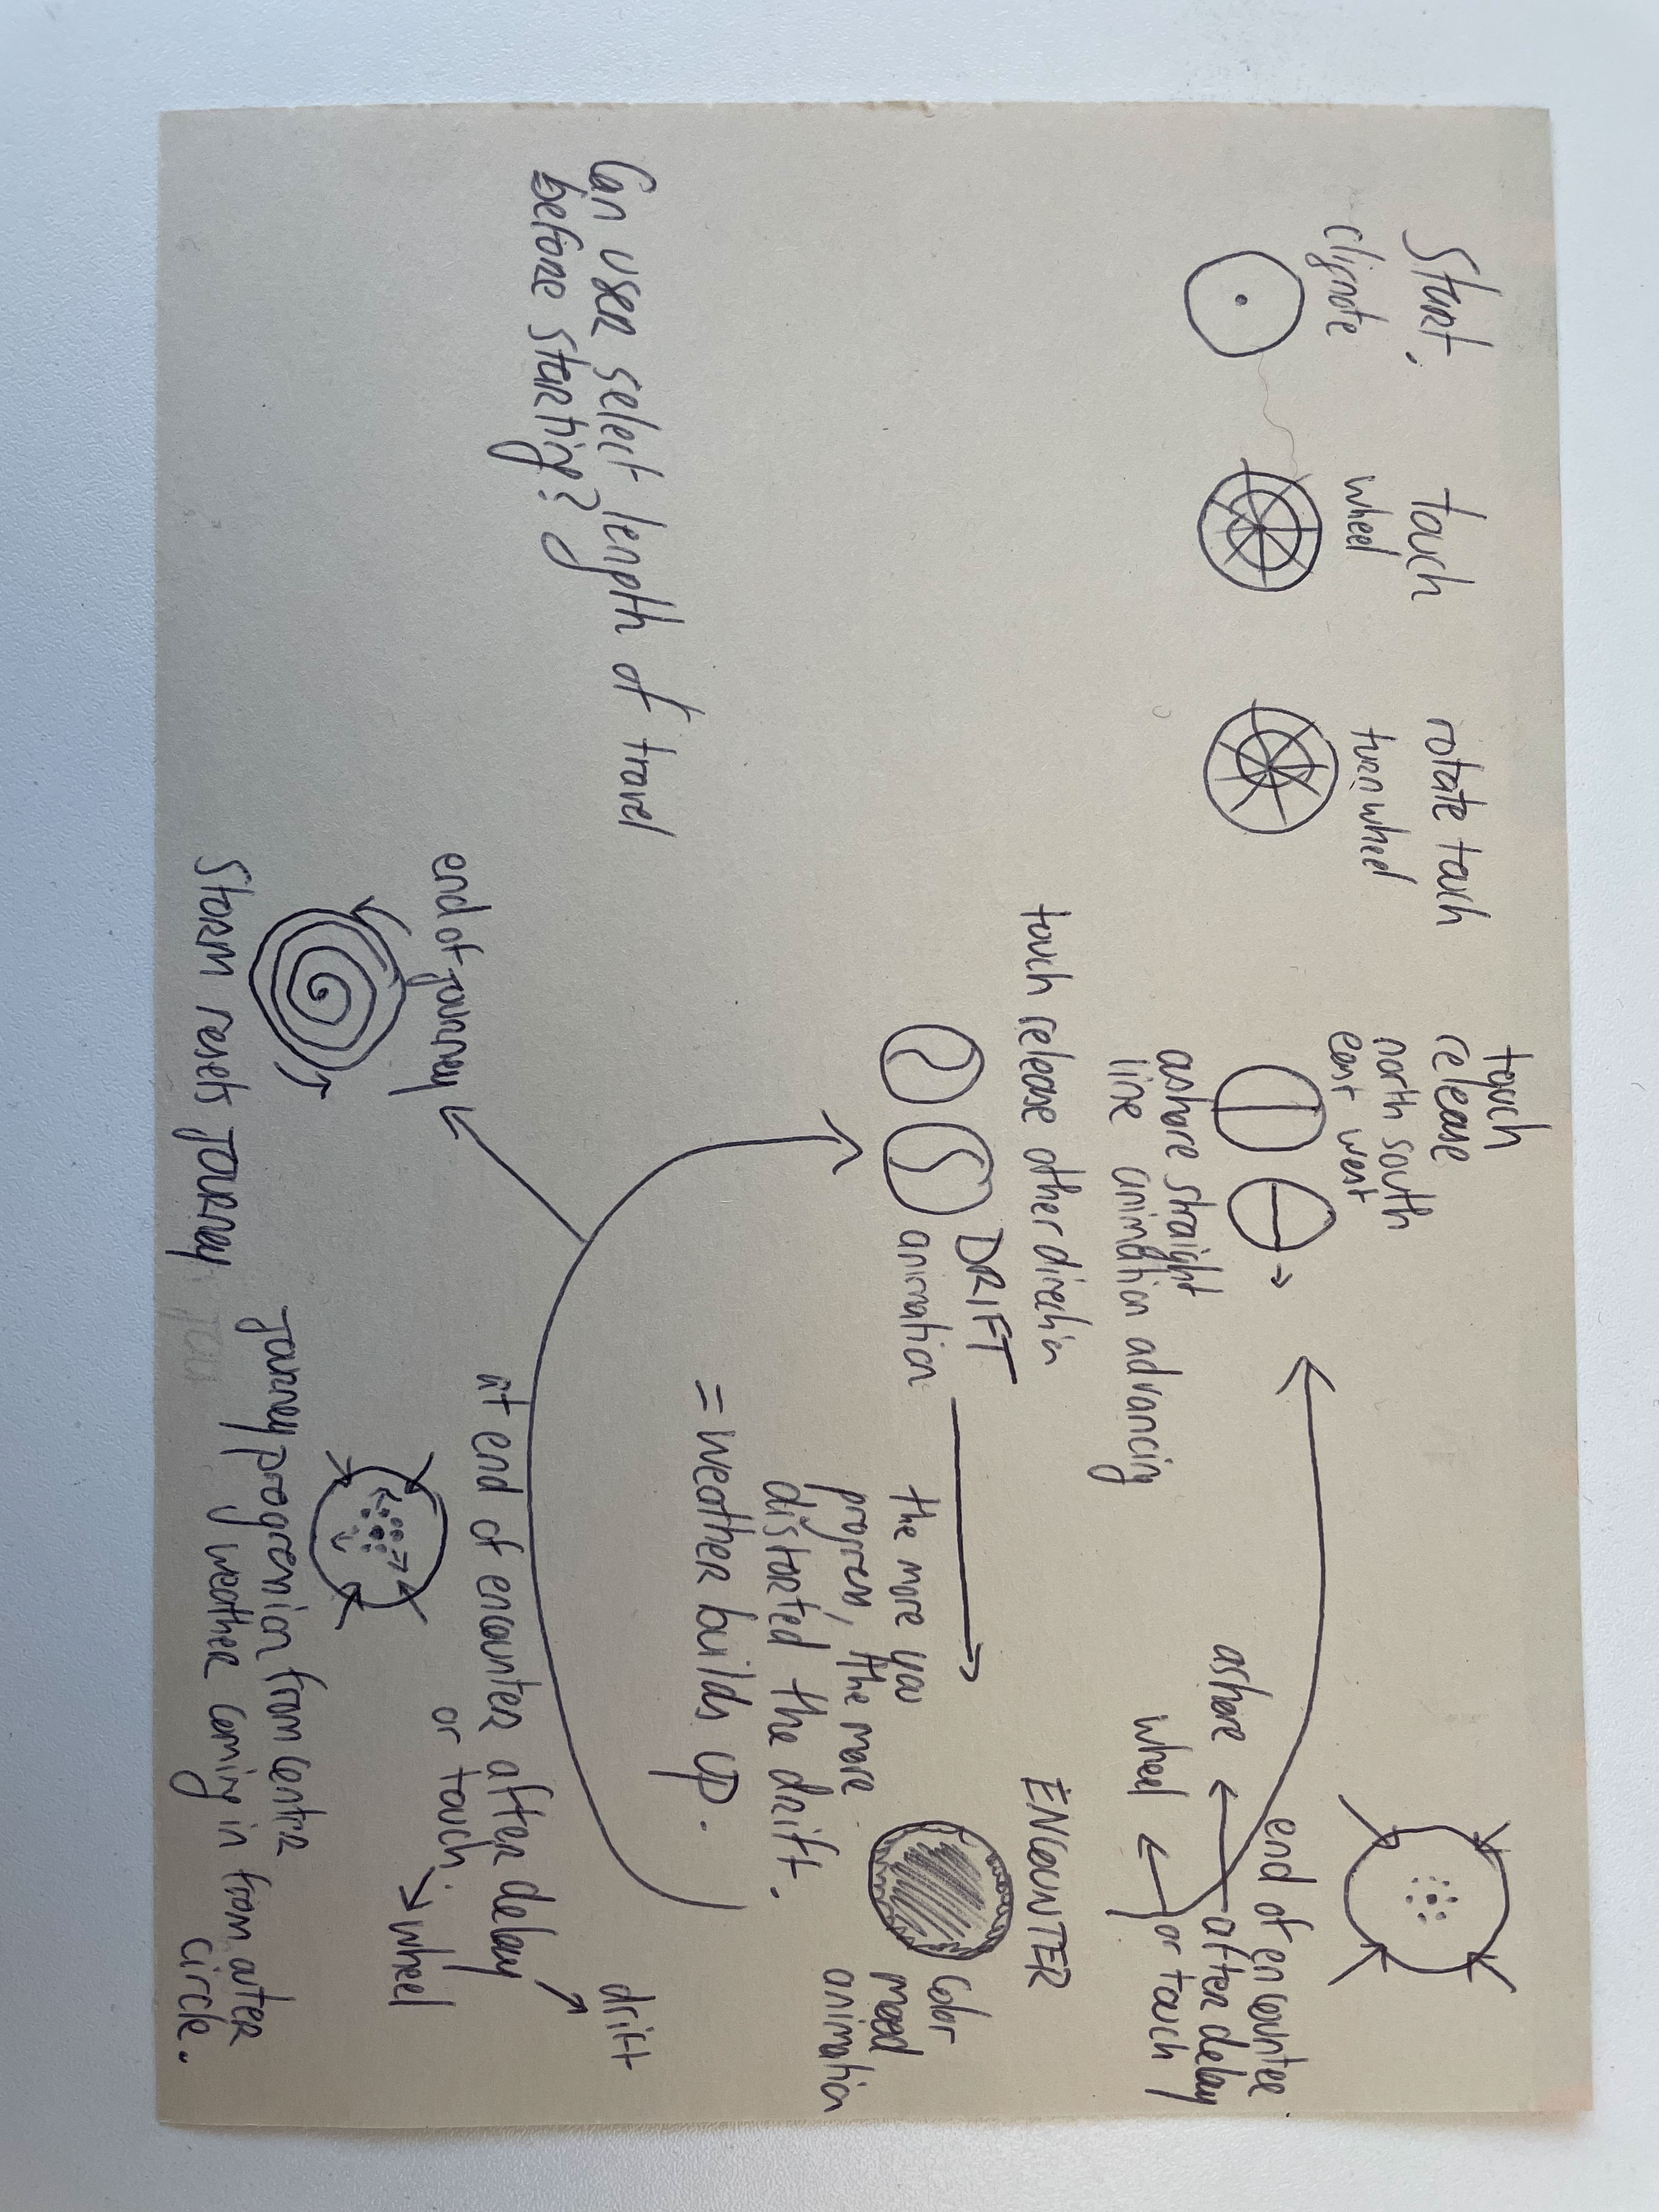 Start.
clignote
touch
wheel
rotate touch
turn wheel
touch
release
north south
east west
ashore straight
line animation advancing
end of encounter
after delay
or touch
ashore
wheel
touch release other direction
DRIFT
animation
the more you
progress, the more
distorted the drift.
= weather builds up.
ENCOUNTER
Color
mood
animation
Can user select length of travel
before starting?
at end of encounter after delay
or touch.
drift
wheel
end of journey
Storm resets journey
journey progression from center
weather coming in from outer
circle.